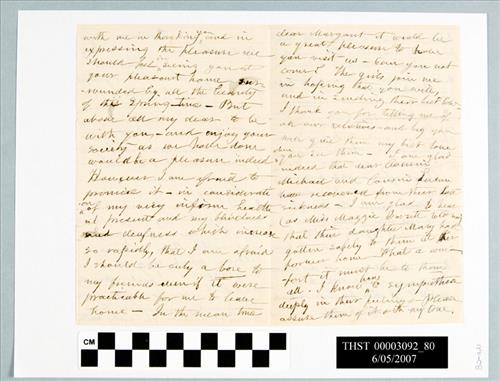 with me in thanking you and in
expressing the pleasure we
should feel in seeing you at
your pleasant home sur-
rounded by all the beauty
of the Spring time - But
above all my dear to be
with you - and enjoy your
society as we have done
would be a pleasure indeed
However I am afraid to
promise it - in consideration
of my very infirm health
at present and my blindness
and deafness which increase
so rapidly, that I am afraid
I should be only a bore to
my friends even if it were
practicable for me to leave
home - In the mean time
dear Margaret it would be
a great pleasure to have
you visit us - Can you not
come? The girls join me
in hoping that you will,
and in sending their best love
I thank you for telling me of
all our relatives - and beg you
will give them my best love
I am glad
indeed that dear
Michael and
have recovered from their
sickness - I am glad to hear
(as Miss Maggie told me)
that their daughter Mary had
gotten safely to them at
former home - What a com-
fort it must be to them
all - I know how to sympathise
deeply in their feelings - Please
assure them of it with my love.
CM
THST 00003092_80
6/05/2007